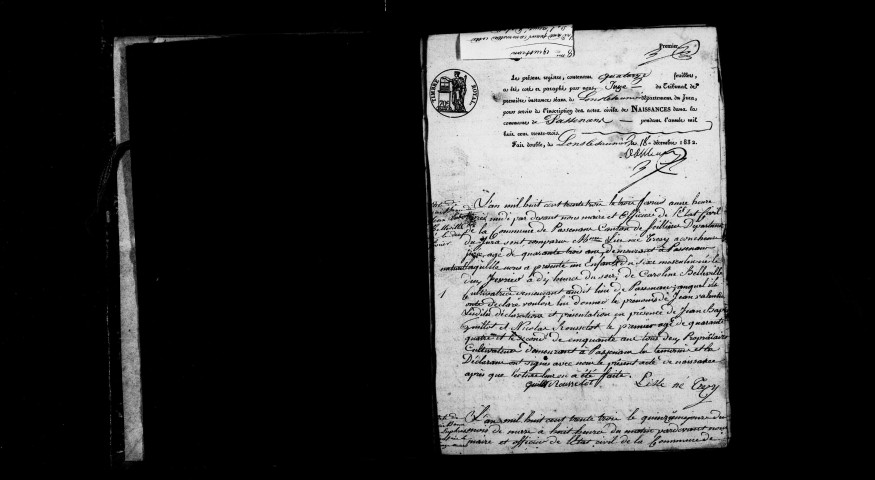 Premier
Le présent registre, contenant quatorze feuillets,
a été coté et paraphé par nous, Juge du Tribunal de
première instance séant à Lons le Saunier département du Jura,
pour servir de l'inscription des actes civils des NAISSANCES dans la
commune de Passenans pendant l'année mil
huit cent trente-trois.
Fait double, à Lons le Saunier le 18 décembre 1832.
TIMBRE ROYAL
L'an mil huit cent trente trois le trois février a une heure
après midi par devant nous maire et Officier de l'Etat Civil
de la Commune de Passenans Canton de Sellières Département
du Jura sont comparue née Trésy acouche
agé de quarante trois ans demeurant à Passenans
laquelle nous a présenté un Enfant du sexe masculin né le
deux février à dix heures du soir, de Caroline Belleville
1 Cultivatrice demeurant audit lieu de Passenans auquel
ont déclaré vouloir lui donner le prénoms de Jean
déclaration et présentation en présence de Jean Bap
Guillot et Nicolas Rousselot le premier agé de quarante
quatre et le second de cinquante ans tous deux Propriétaires
Cultivateurs demeurant à Passenans les témoins et la
Déclarant ont signés avec nous le présent acte de naissance
après que lecture leur en a été faite.
Rousselot Liste né Trésy
L'an mil huit cent trente trois le quinzième jour du
mois de mars à huit heures du matin pardevant nous
maire et officier de l'Etat civil de la Commune de